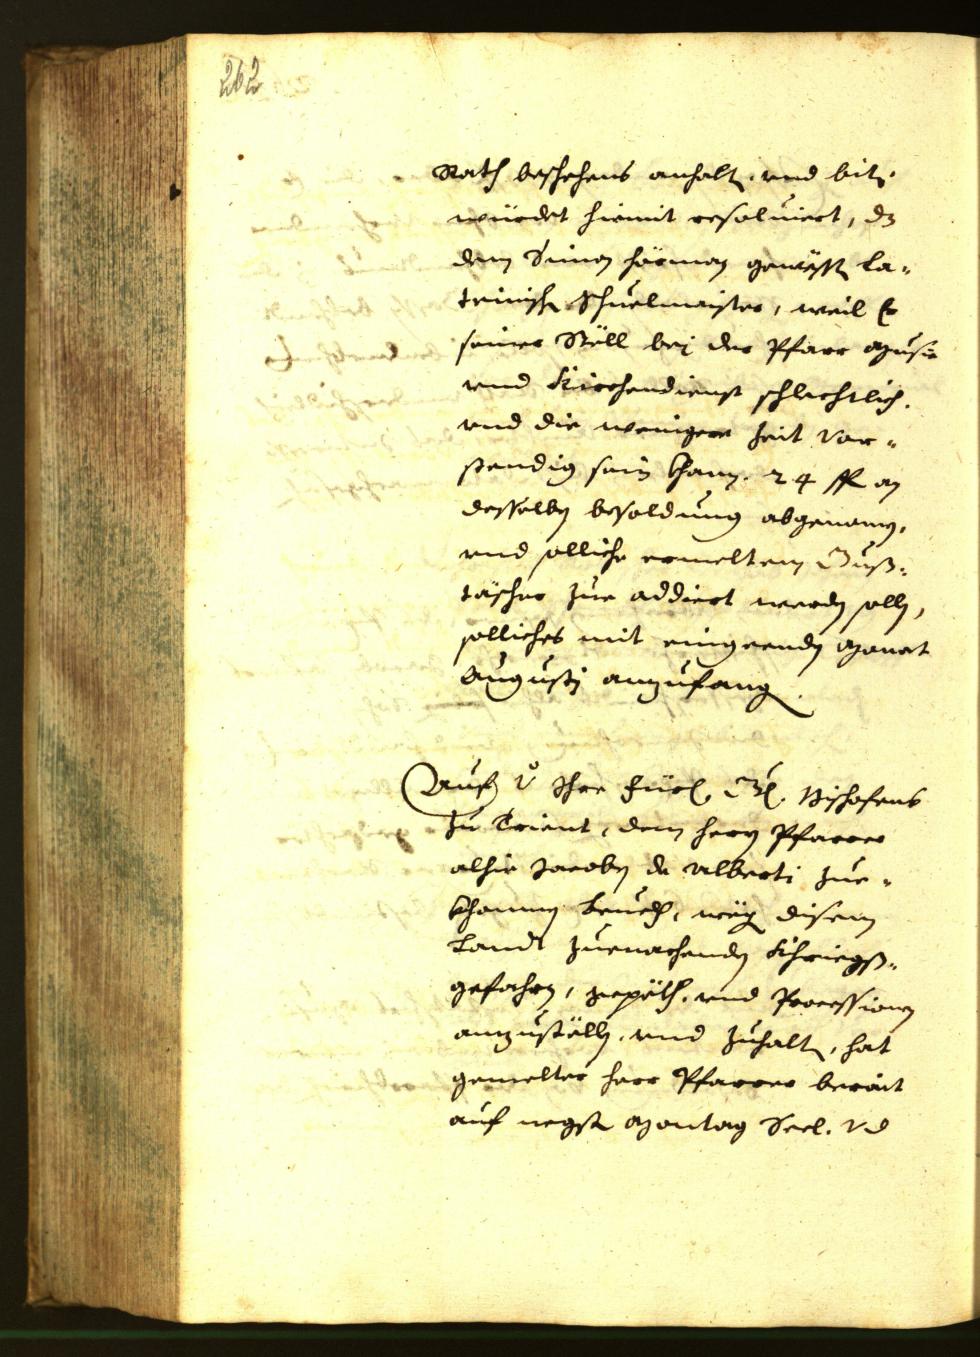 262
Rath beschehens anhalt, vnd bit,
würdet hiemit resoluiert, dz
dem Simon Härman gewest La-
teinisch Schuelmaister, weil Er
seiner Stöll bej der Pfarr
vnd Kirchendienst schlechtlich,
vnd die weniger Zeit vor-
stendig sein khan, 24 fl an
desselben besoldung abgenomen,
vnd solliche ermeltem
zue addiert werden sollen,
solliches mit eingeenden Monat
Augustj anzufangen.
Auf Ihre Fürl. Gl. Bischofens
zu Trient, dem herrn Pfarrer
alhie Jacoben de Alberti zue-
khomnen beuelch, weg disem
Landt zuenachenden Khriegs-
gefahrn, gepëth, vnd Processionen
anzustöllen, vnd zuhalten, hat
gemelter herr Pfarrer bereit
auf negst Montag Seel.